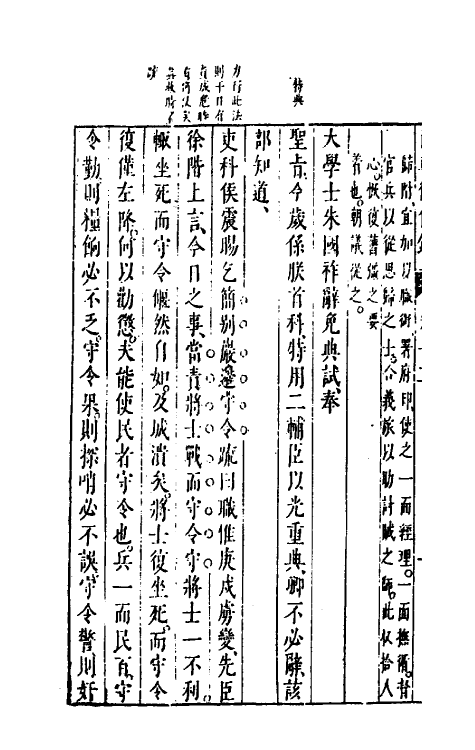 歸附宜加以職銜署府印使之一面經理一面撫循督
官兵以從思歸之士合義旅以助討賊之師此收拾人
心恢復舊疆之要
着也朝議從之
大學士朱國祚辭免典試奉
聖旨今歲係朕首科特用二輔臣以光重典卿不必辭該
部知道
吏科侯震暘乞簡別嚴邊守令疏曰職惟庚戌虜變先臣
徐階上言今日之事當責將士戰而守令守將士一不利
輒坐死而守令偃然自如及城潰矣將士復坐死而守令
復僅左降何以勸懲夫能使民者守令也兵一而民百守
令勤則糧餉必不乏守令果則探哨必不誤守令警則奸
特典
力行此法
則干日有